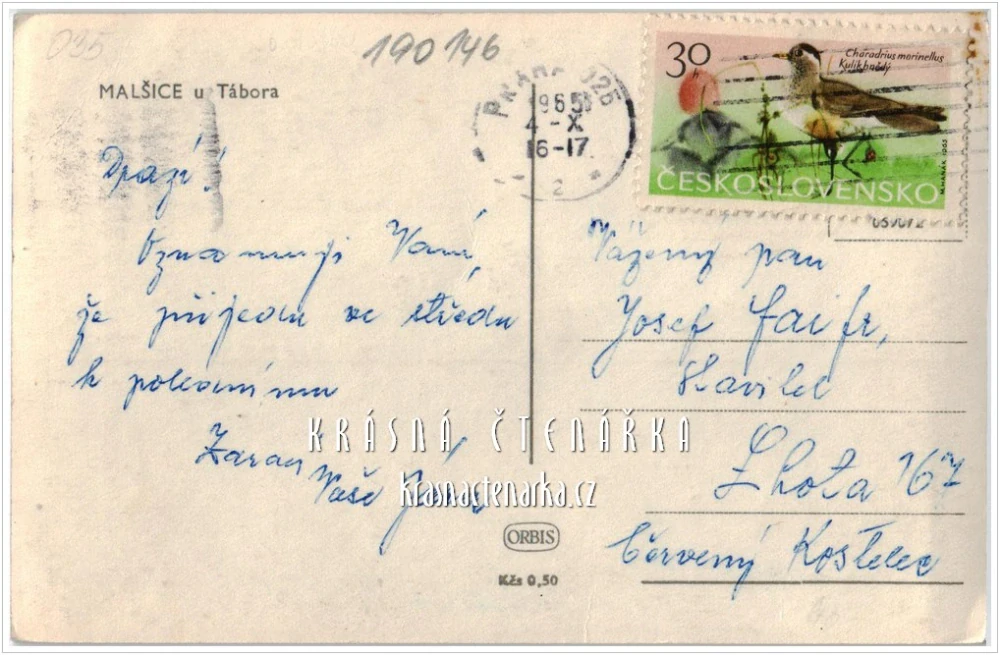 035
190146
MALŠICE u Tábora
PRAHA 025
1965
4-X
16-17
2
30 h
Charadrius morinellus
Kulík hnědý
ČESKOSLOVENSKO
Drazí!
Oznamuji Vám,
že přijedu ve středu
k polednímu
Zdraví Vaše
Vážený pan
Josef Faifr,
stavitel
Lhota 167
Červený Kostelec
KRÁSNÁ ČTENÁŘKA
krasnactenarka.cz
ORBIS
Kčs 0,50